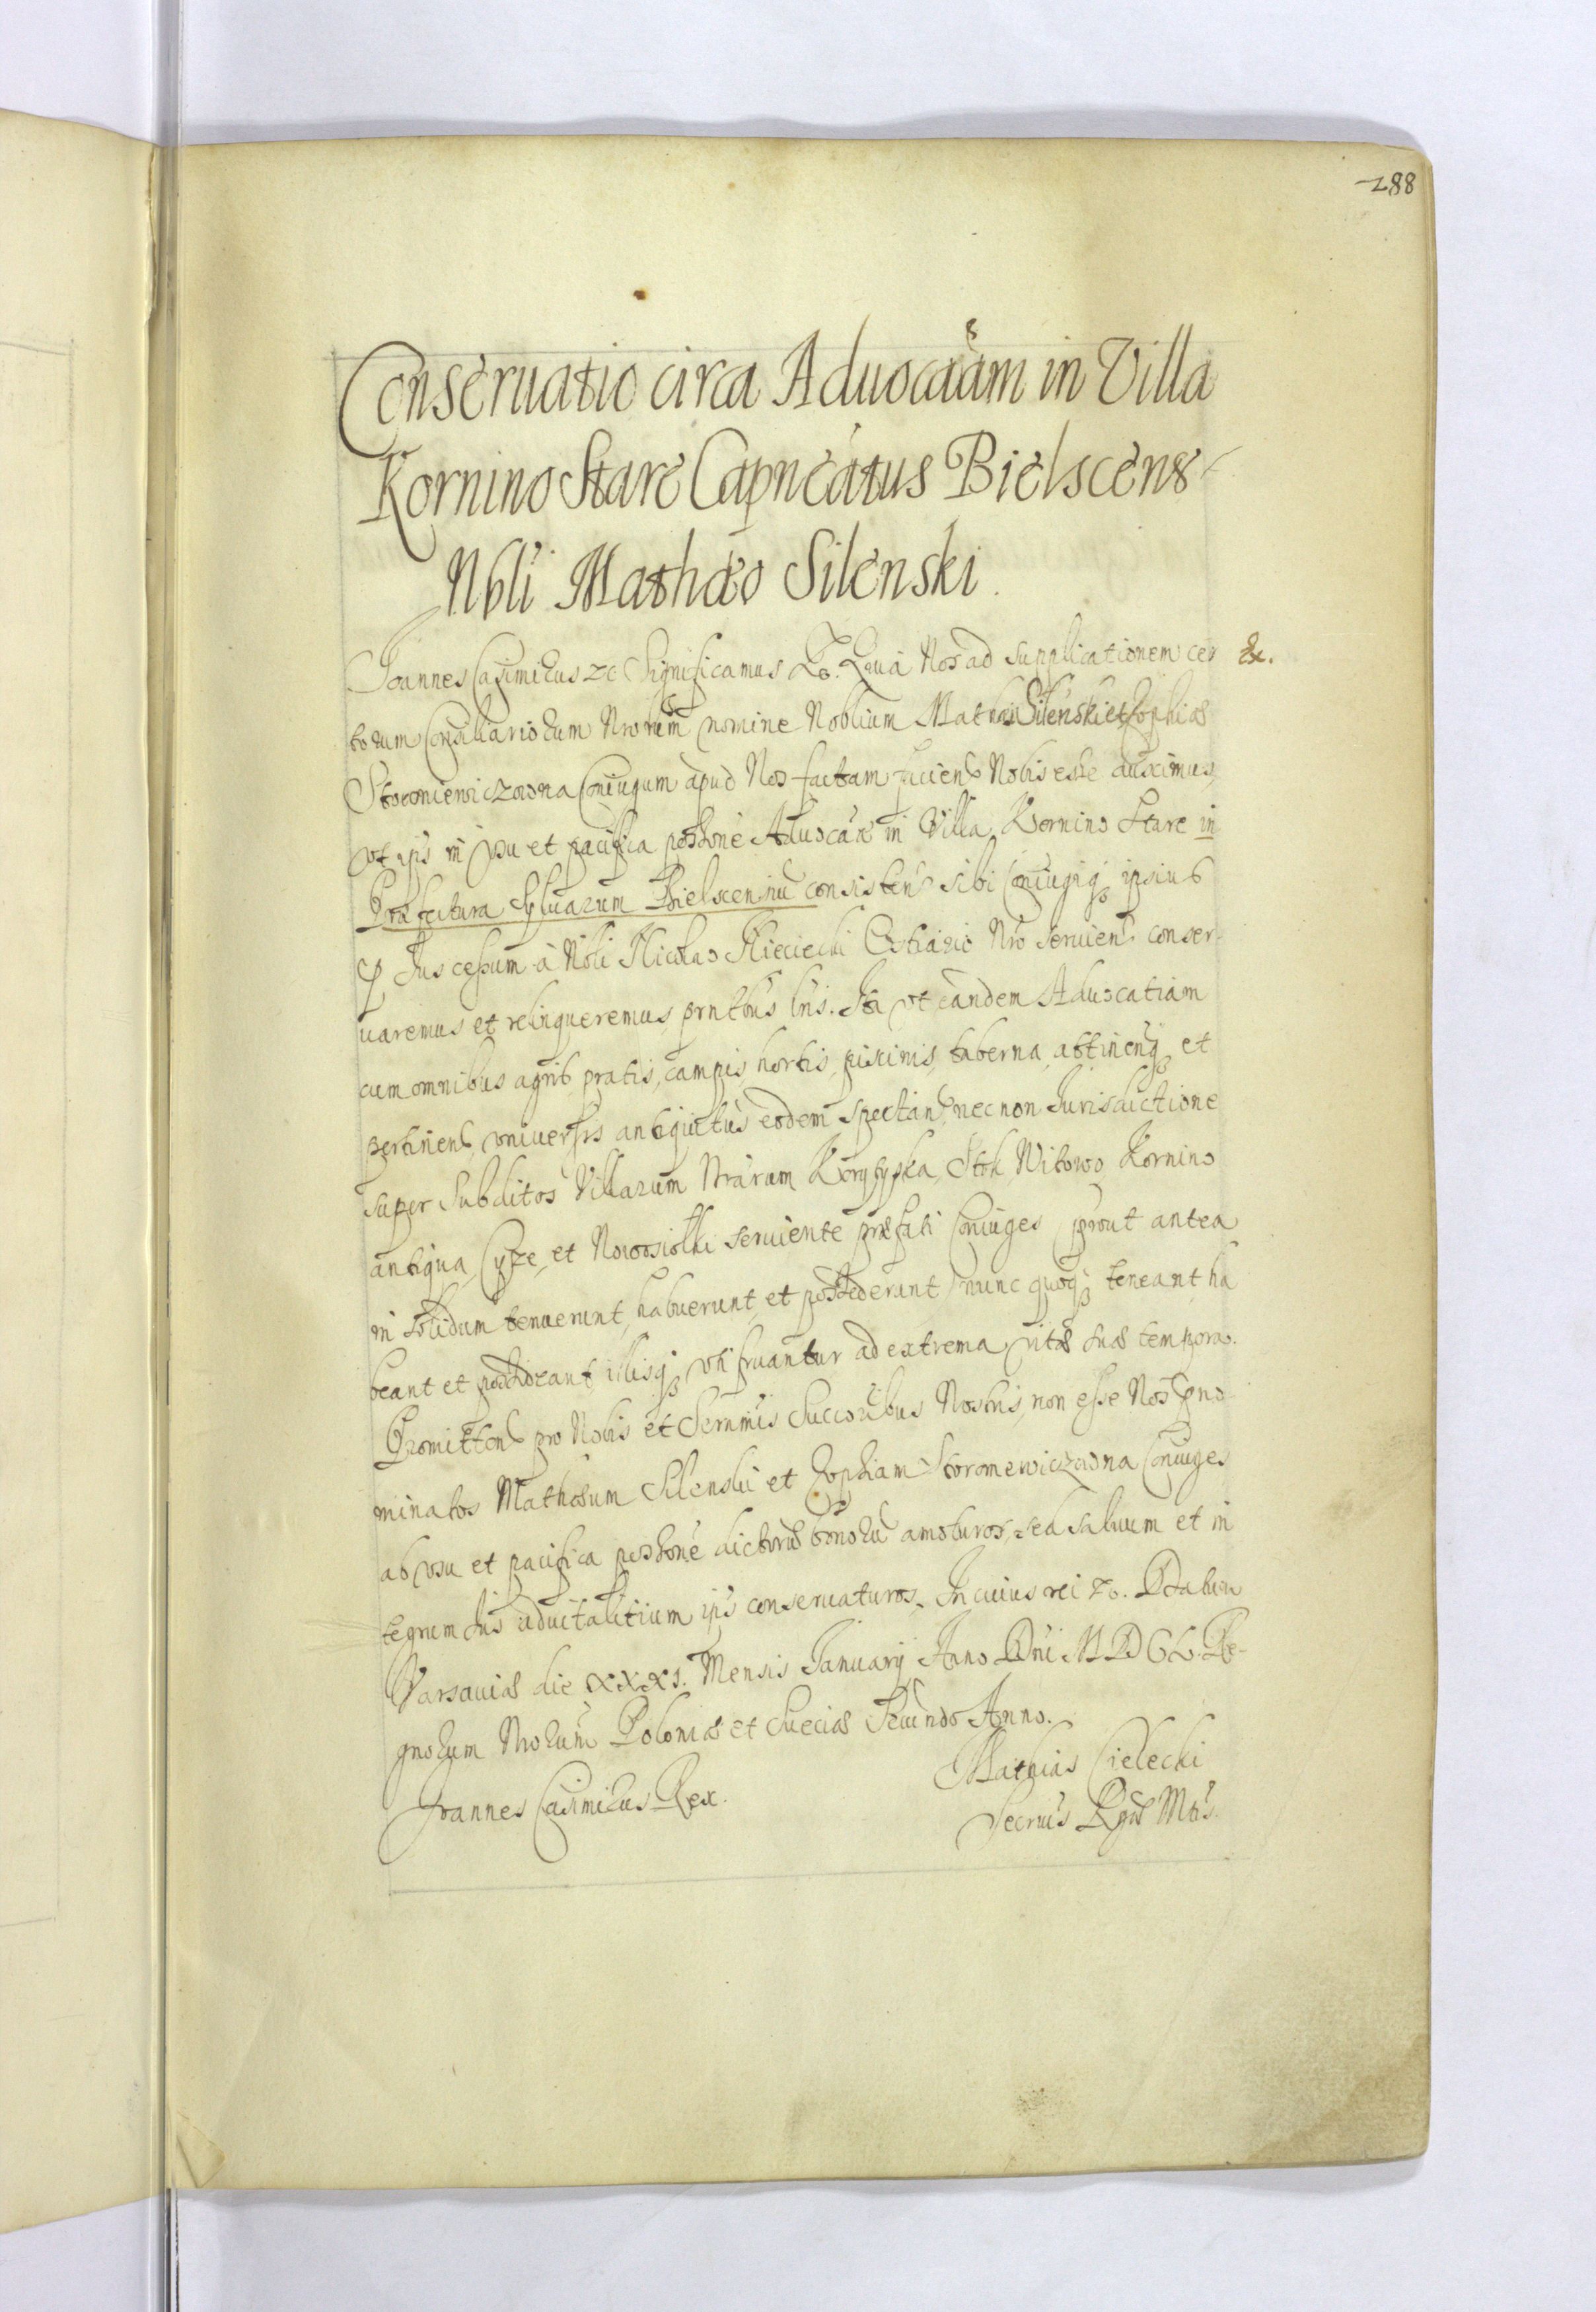 288
Conseruatio circa Aduocaam in Villa
Kornino Stare Capneatus Bielscens
Nbli Mathæo Silenski.
Joannes Casimirus &c Significamus &c. Quia Nos ad supplicationem cer &.
torum Consiliariorum Nrorum nomine Noblium Mathæi Silenski et Zophiæ
Storomiewiczowna Coniugum apud Nos factam faciend Nobis esse duximus,
vt ips in vsu et pacifica possone Aduocaæ in Villa Kornino Stare in
Præfectura Syluarum Bielscensiu consisten sibi Coniugiq ipsius
p Jus cessum à Nbli Nicolao Kieciecki Ostiario Nro seruien conser
uaremus et relinqueremus prntbus lris. Ita vt eandem Aduocatiam
cum omnibus agris pratis, campis hortis, piscinis, taberna, attinenq et
pertinen vniuersis antiquitus eodem spectan, necnon Jurisdictione
super Subditos Villarum Nrarum Koryçyska, Stok, Witowo, Kornino
antiqua, Cyze, et Nowosiolki seruiente præfati Coniuges prout antea
in solidum tenuerunt, habuerunt, et possederunt nunc quoq teneant, ha
beant et possideant illisq vti fruantur ad extrema vitæ suæ tempora.
Promitten pro Nobis et Sernmis Succoribus Nostris, non esse Nos pno
minatos Mathæum Silenski et Zophiam Storomewiczowna Coniuges
ab vsu et pacifica possone dictoru bonoru amoturos, sed saluum et in
tegrum Jus aduitalitium ips conseruaturos. In cuius rei &c. Datum
Varsauiæ die XXXI. Mensis January Anno Dni MDCL. Re-
gnorum Nrorum Poloniæ et Sueciæ Secundo Anno.
Joannes Casimirus Rex.
Mathias Cielecki
Secrius Rgiæ Mtis.